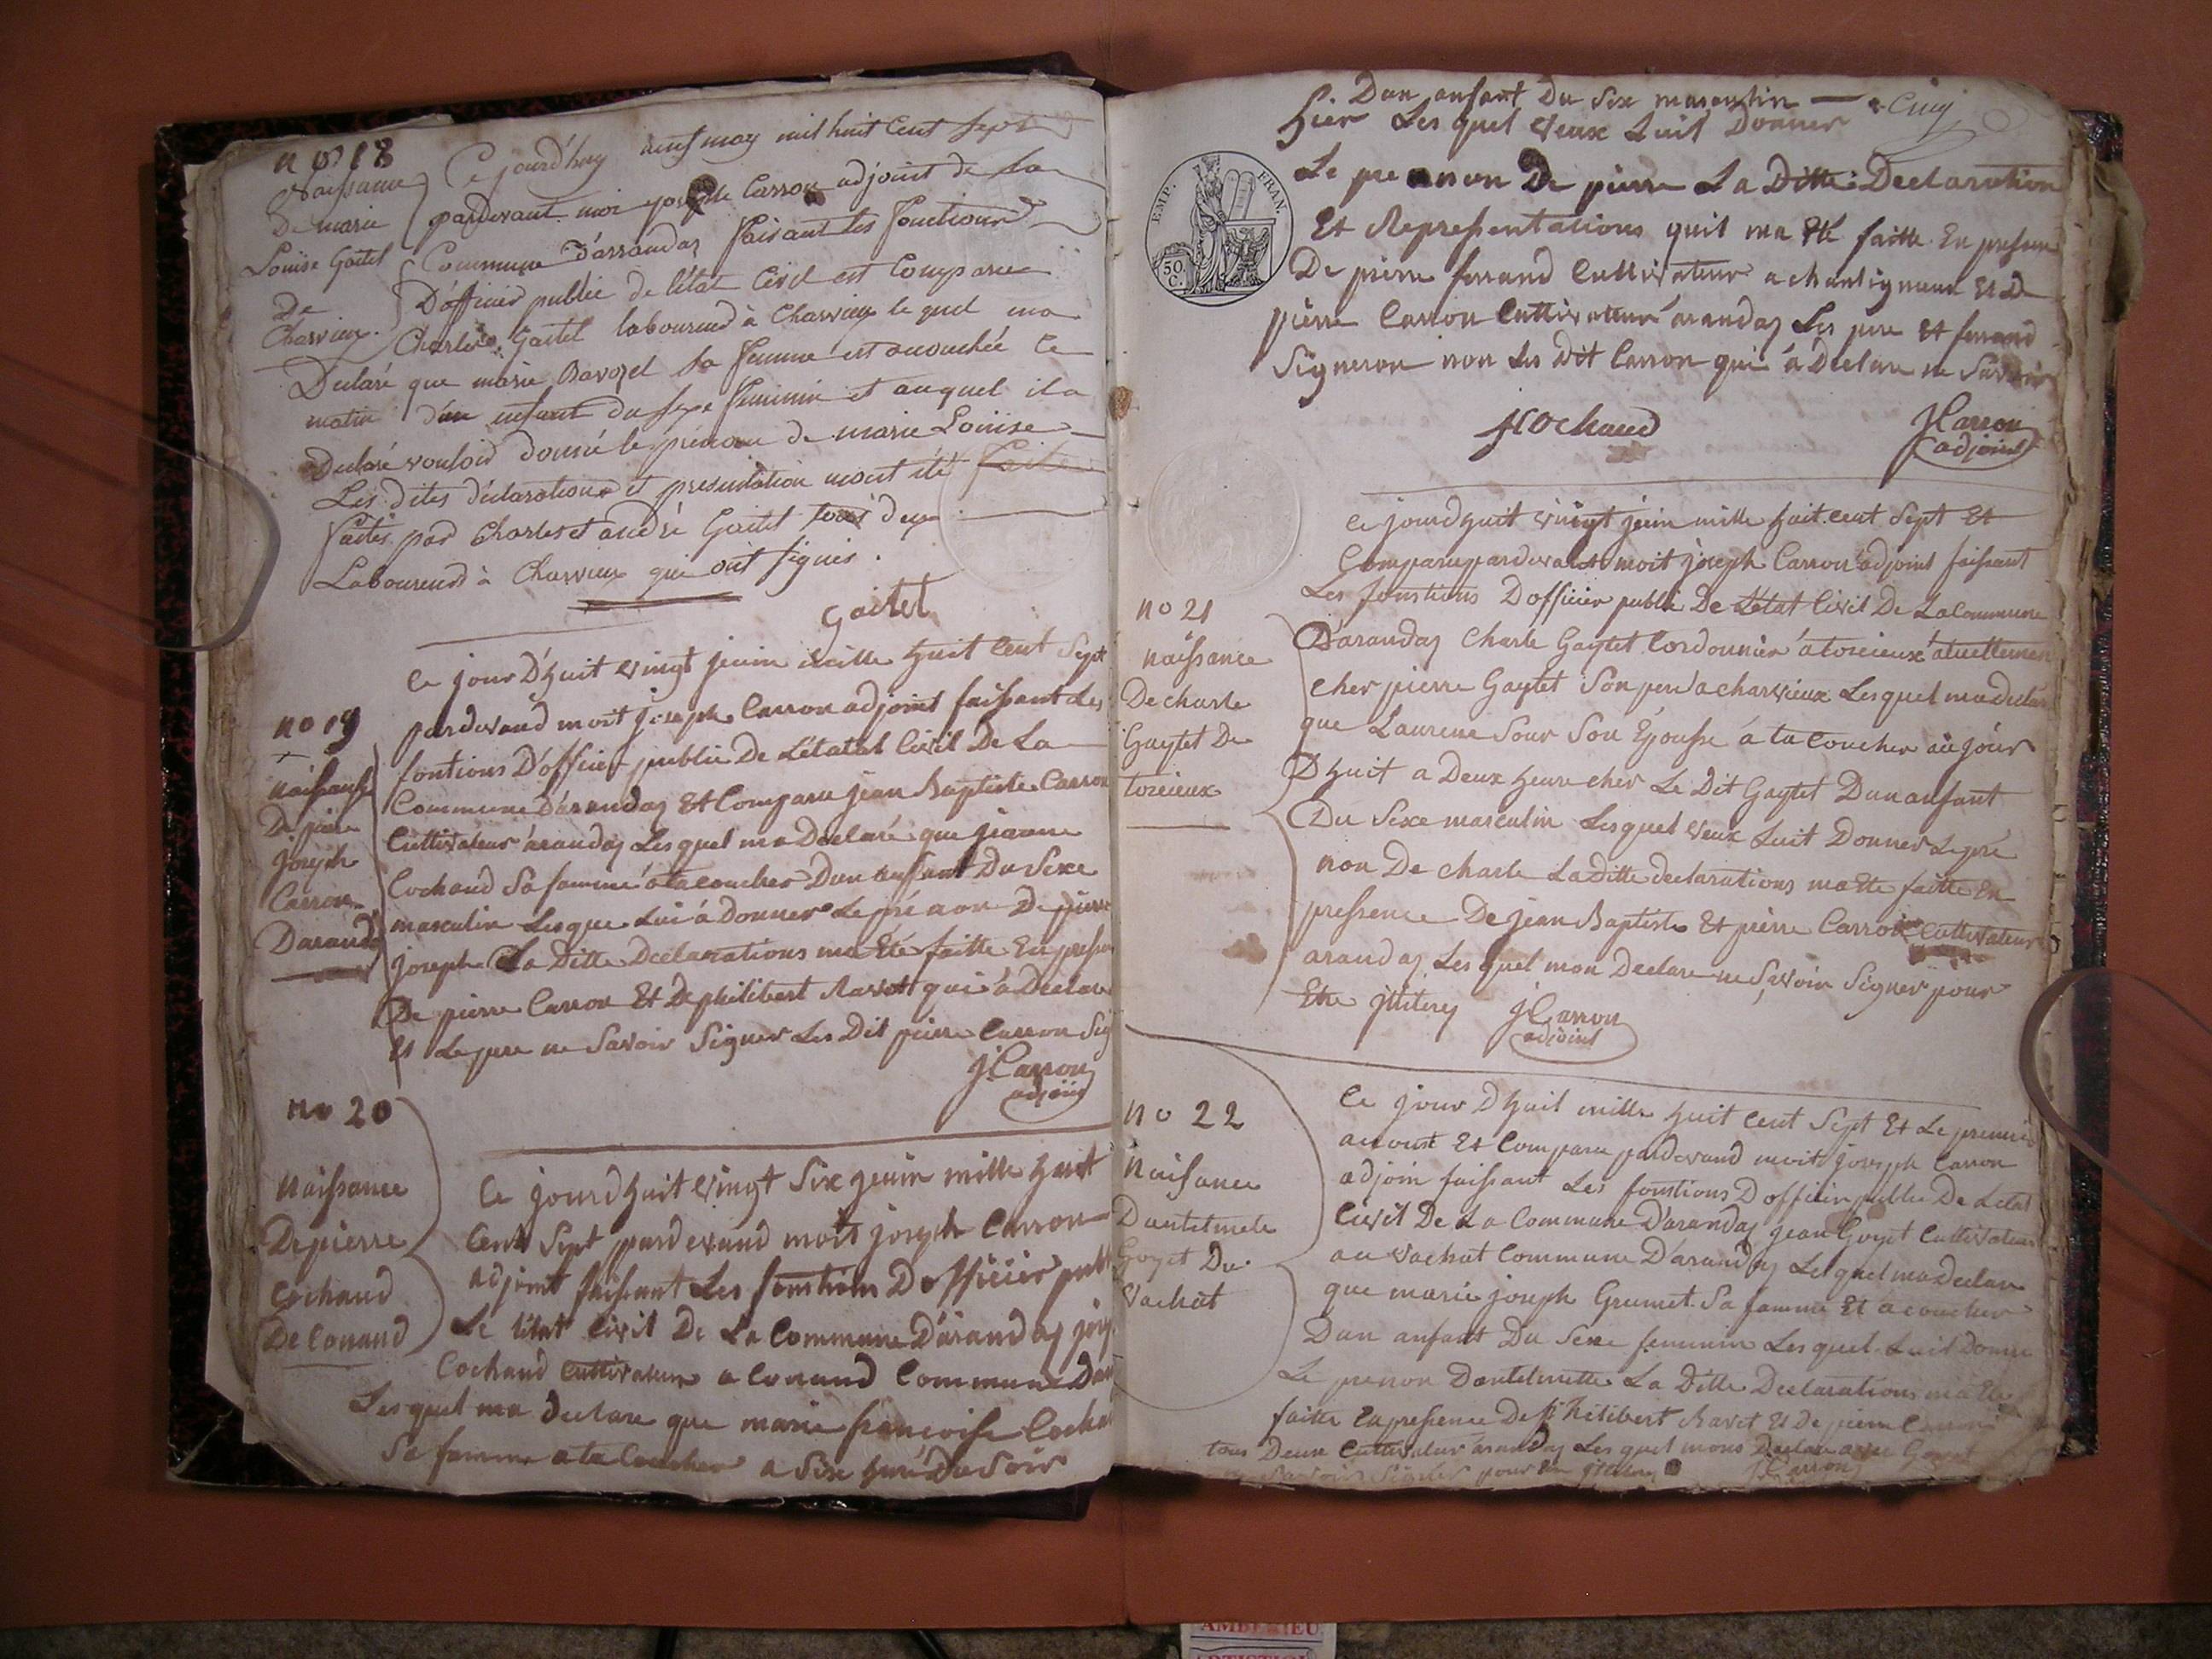 no 18
Naissance
De marie
Louise Gaitet
De
Charvieux
Ce jourd'huy neuf may mil huit Cent Sept
pardevant moi joseph Carron adjoint de la
Commune D'arrandas faisant les fonctions
D'officier public de l'état Civil est Comparu
Charles Gaitet laboureur à Charvieux le quel ma
Declaré que marie Ravozel sa femme est acouchée ce
matin d'un enfant du sexe feminin et auquel il a
Declaré vouloir donné le prénom de marie Louise
Les dites déclarations et presentation mont été
faites par Charles et andré Gaitet tous deux
Laboureurs à Charvieux qui ont signés.
Gaitet
no 19
naissanse
De pierre
joseph
Carron
Darand
Ce jour D'huit vingt jeuin mille huit Cent Sept
pardevand moit joseph Carron adjoint faissant Les
fontions D'officier public De L'étatat Civil De La
Commune D'arandas Et Comparu jean Baptiste Carron
Cultivateur arandas Lesquel ma Declaré que jeanne
Cochand Sa famme a ta coucher Dun enfant Du Sexe
masculin Lesque Lui à Donner Le pré non De pierre
joseph La Ditte Declarations ma Eté faitte En presen
De pierre Carron Et De philibert Ravet qui à Declare
Et Le pere ne Savoir Signer Les Dit pierre Carron Sig
J Carron
adjoint
no 20
Naissance
De pierre
Cochand
De Conand
Ce jourdhuit vingt Six jeuin mille huit
Cent Sept pardevand moit joseph Carron
adjoint faissant Les fonstions D officier publ
Le l'état Civil De La Commune D'arandas jos
Cochand Cultivateur a Conand Commune Dar
Lesquel ma declare que marie françoisse Cochan
Sa famme a ta Coucher a Six huré Du Soir
Dun anfant Du Sex masculin Cinq
hier Les quel veux Luit Donner
EMP. FRAN.
50. C.
Le pre non De pierre La Ditte Declaration
Et Representations quil ma Eté faitte En presen
De pierre ferrand Cultivateur a Et De
pierre Carron Cultivateur arandas Les pere Et ferrand
Signeron non Les Dit Carron qui à Declare ne Savoir
J Cochand
J Carron
adjoint
no 21
naissance
De charle
Gaytet De
torcieux
Ce jourdhuit vuingt jeuin mille huit cent Sept Et
Comparu pardevant moit joseph Carron adjoint faissant
Les fonstions D officier public De L'état Civil De La Commune
D'arandas Charle Gaytet Cordonnier a torcieux atuellemen
cher pierre Gaytet Son pere a charvieux Lesquel ma declar
que Laurene Sour Son Epousse à ta Coucher au jour
Dhuit a Deux heure cher Le Dit Gaytet Dun anfant
Du Sexe masculin Lesquel veux Luit Donner Le pré
non De charle La ditte declarations ma Ete faitte En
pressence De jean Baptiste Et pierre Carron Cultivateur
arandas Les quel mon Declare ne Savoir Signer pour
Etre
J Carron
adjoint
no 22
Naisance
Dantelmete
Goyet Du
Vachat
Ce jour Dhuit mille huit Cent Sept Et Le premier
auoust Et Comparu pardevand moit joseph Carron
adjoin faissant Les fonstions D officier public De Letat
Civil De La Commune D'arandas jean Goyet Cultivateur
au vachat Commune D'arandas Lesquel ma Declare
que marie joseph Grumet Sa famme Et acoucher
Dun anfant Du Sexe feminin Les quel Luit Donne
Le prenon Dantelmette La Ditte Declarations ma Ete
faitte En pressence De philibert Ravet Et De pierre Carron
tous Deux Cultivateur arandas Les quel mons Declare avec Goyet
ne Savoir Signer pour J Carron
AMBERIEU